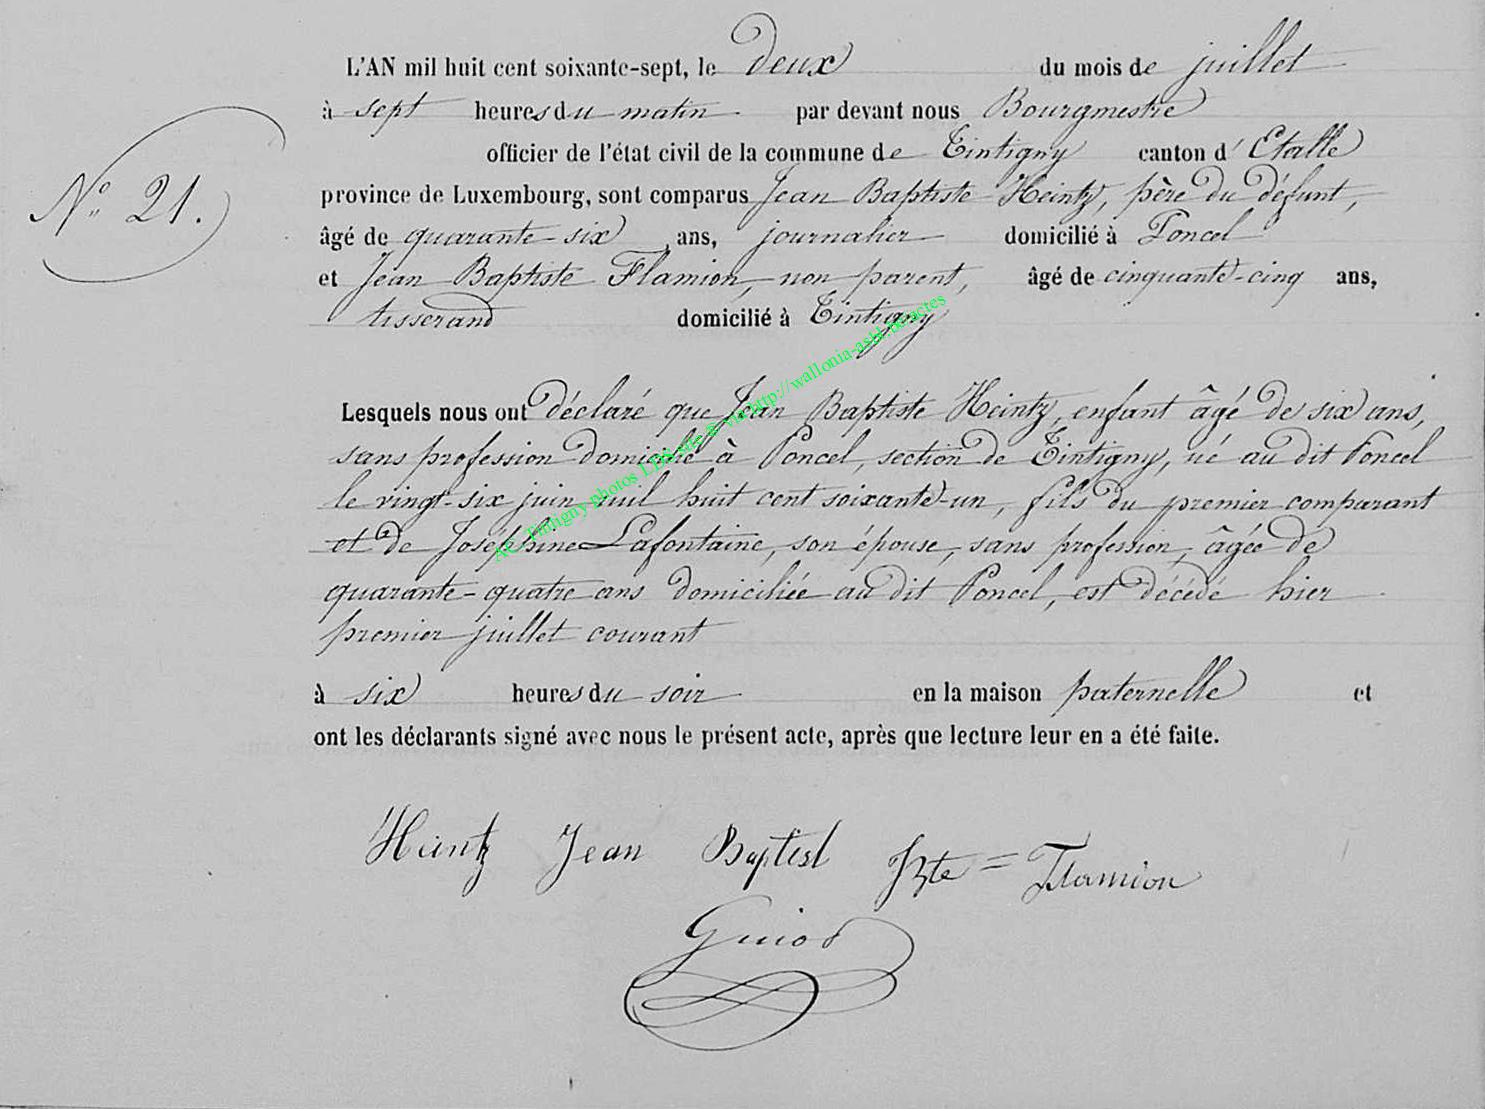 L'AN mil huit cent soixante-sept, le deux du mois de juillet
à sept heures du matin par devant nous Bourgmestre
officier de l'état civil de la commune de Tintigny canton d' Etalle
N° 21.
province de Luxembourg, sont comparus Jean Baptiste Heintz, père du défunt,
âgé de quarante-six ans, journalier domicilié à Poncel
et Jean Baptiste Flamion, non parent, âgé de cinquante-cinq ans,
tisserand domicilié à Tintigny
Lesquels nous ont déclaré que Jean Baptiste Heintz, enfant âgé de six ans,
sans profession domicilié à Poncel, section de Tintigny, né au dit Poncel
le vingt-six juin mil huit cent soixante-un, fils du premier comparant
et de Joséphine Lafontaine, son épouse, sans profession, âgée de
quarante-quatre ans domiciliée au dit Poncel, est décédé hier
premier juillet courant
à six heures du soir en la maison paternelle et
ont les déclarants signé avec nous le présent acte, après que lecture leur en a été faite.
Heintz Jean Baptist JBte = Flamion
Guiot
AC Tintigny photos LDS site © via http://wallonia-asbl.be/actes